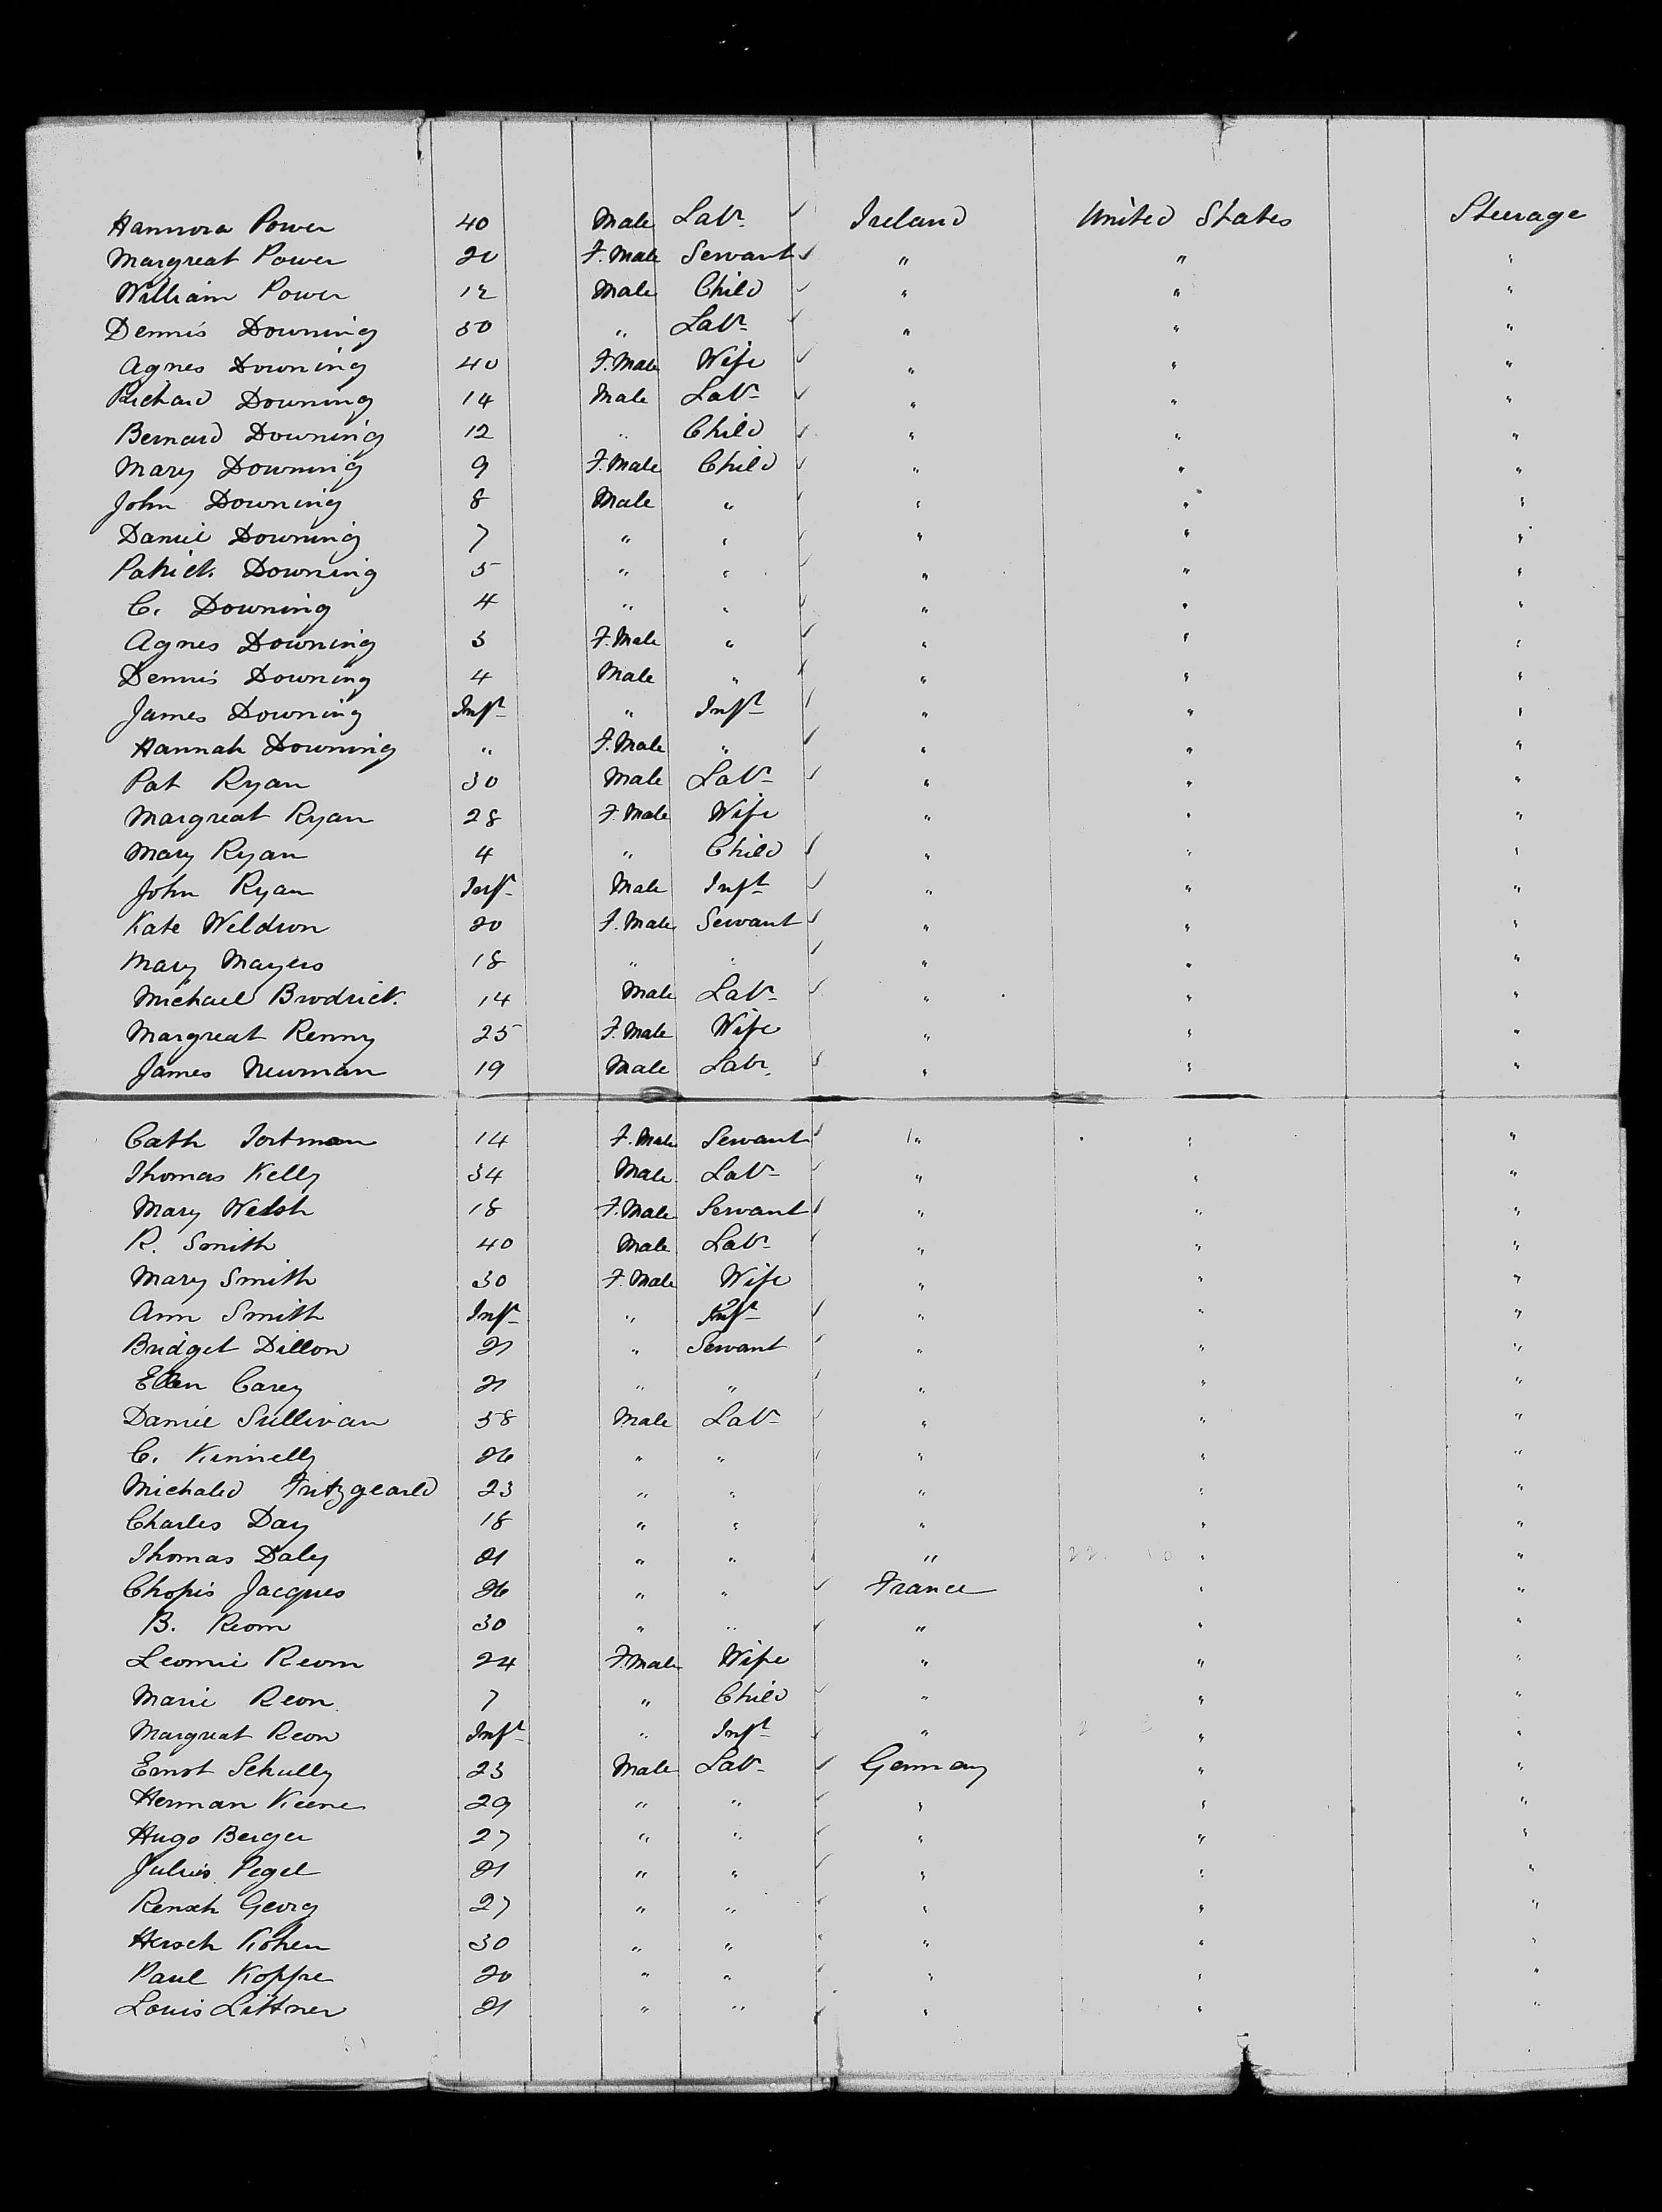 Hannora Power 40 Male Labr Ireland United States Steerage
Margreat Power 20 F. Male Servant " " "
William Power 12 Male Child " " "
Dennis Downing 50 " Labr " " "
Agnes Downing 40 F. Male Wife " " "
Richard Downing 14 Male Labr " " "
Bernard Downing 12 " Child " " "
Mary Downing 9 F. Male Child " " "
John Downing 8 Male " " " "
Daniel Downing 7 " " " " "
Patrick Downing 5 " " " " "
C. Downing 4 " " " " "
Agnes Downing 3 F. Male " " " "
Dennis Downing 4 Male " " " "
James Downing Inft " Inft " " "
Hannah Downing " F. Male " " " "
Pat Ryan 30 Male Labr " " "
Margreat Ryan 28 F. Male Wife " " "
Mary Ryan 4 " Child " " "
John Ryan Inft Male Inft " " "
Kate Weldron 20 F. Male Servant " " "
Mary Mayers 18 " " " " "
Michael Brodrick 14 Male Labr " " "
Margreat Renny 25 F. Male Wife " " "
James Newman 19 Male Labr " " "
Cath Tortman 14 F. Male Servant " " "
Thomas Kelly 34 Male Labr " " "
Mary Welsh 18 F. Male Servant " " "
R. Smith 40 Male Labr " " "
Mary Smith 30 F. Male Wife " " "
Ann Smith Inft " Inft " " "
Bridget Dillon 21 " Servant " " "
Ellen Carey 21 " " " " "
Daniel Sullivan 38 Male Labr " " "
C. Kinnelly 26 " " " " "
Michaled Fritzgearld 23 " " " " "
Charles Day 18 " " " " "
Thomas Daley 21 " " " " "
Chopis Jacques 26 " " France " "
B. Reom 30 " " " " "
Leomie Reom 24 F. Male Wife " " "
Marie Reon 7 " Child " " "
Margreat Reon Inft " Inft " " "
Ernst Schully 23 Male Labr Germany " "
Herman Keene 29 " " " " "
Hugo Berger 27 " " " " "
Julius Pegel 21 " " " " "
Rensch Georg 27 " " " " "
Hersch Kohen 30 " " " " "
Paul Koppe 20 " " " " "
Louis Littner 21 " " " " "